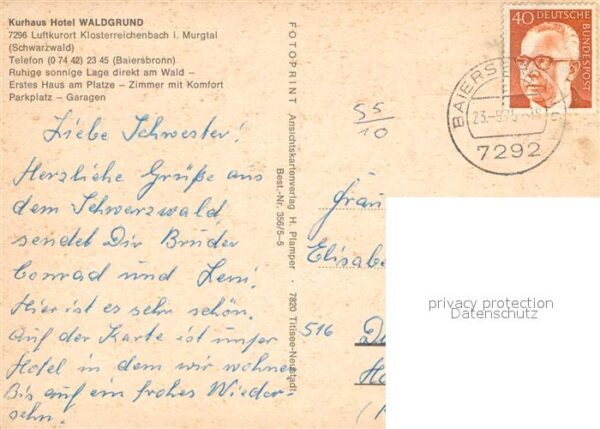 Kurhaus Hotel WALDGRUND
7296 Luftkurort Klosterreichenbach i. Murgtal
(Schwarzwald)
Telefon (0 74 42) 23 45 (Baiersbronn)
Ruhige sonnige Lage direkt am Wald –
Erstes Haus am Platze – Zimmer mit Komfort
Parkplatz – Garagen
Liebe Schwester!
Herzliche Grüße aus
dem Schwarzwald
sendet Dir Bruder
Conrad und Leni.
Hier ist es sehr schön.
Auf der Karte ist unser
Hotel in dem wir wohnen
Bis auf ein frohes Wieder-
sehn!
FOTOPRINT Ansichtskartenverlag H. Pfamper · 7820 Titisee-Neustadt
Best.-Nr. 356/5–5
55
10
40 DEUTSCHE
BUNDESPOST
BAIERS
23.-9.75
7292
Frau
Elisabe
516
privacy protection
Datenschutz